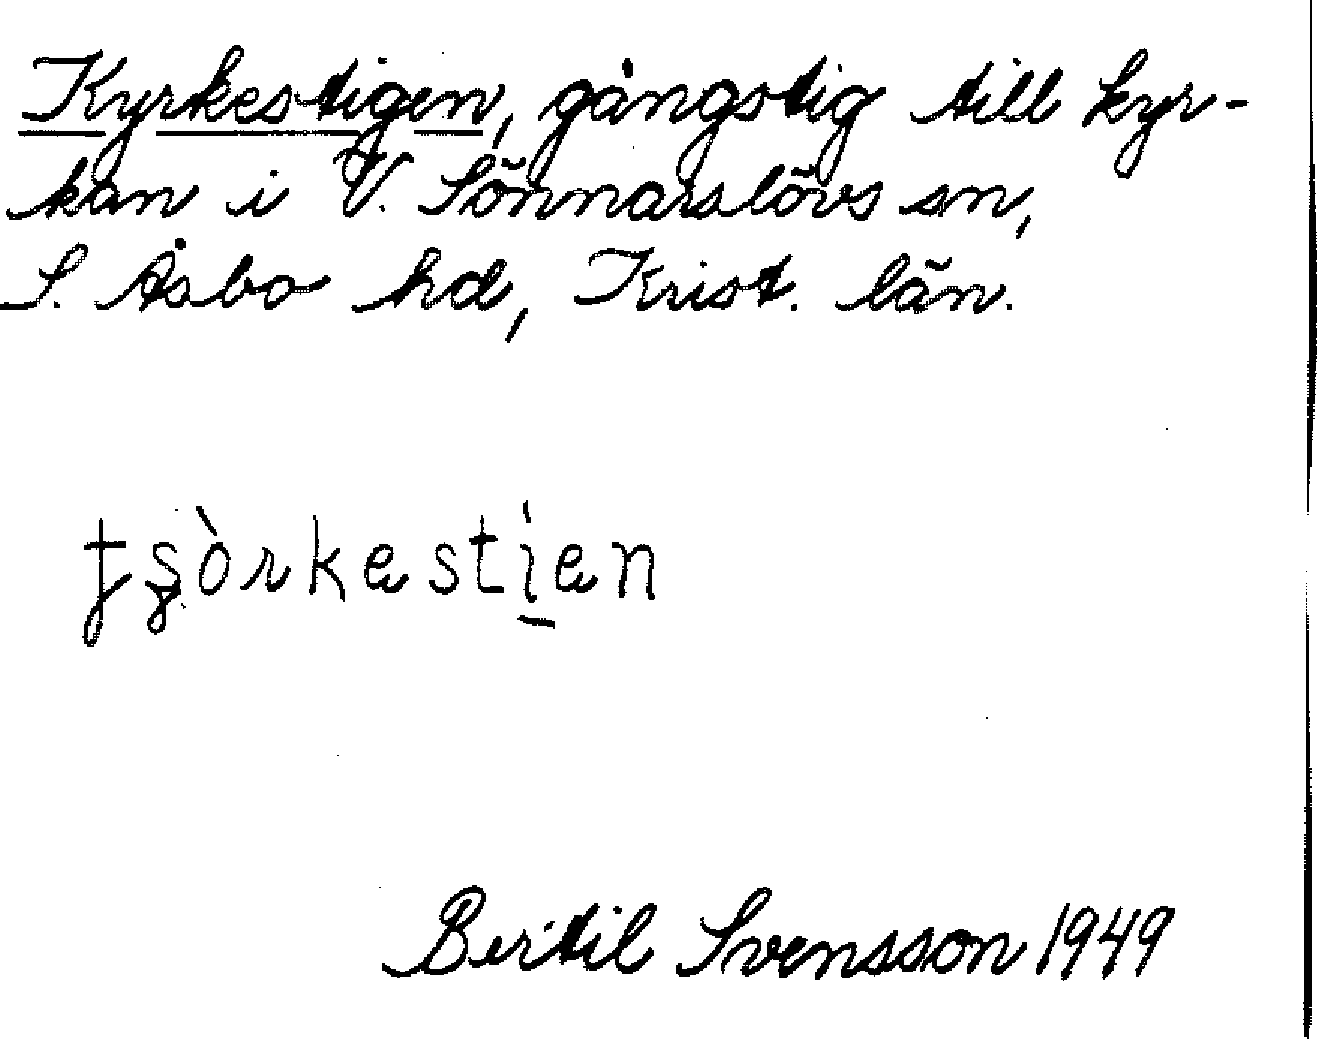 Kyrkestigen, gångstig till kyr-
kan i V. Sönnarslövs sn,
S. Åsbo hd, Krist. län.
tʂòrkestíen
Bertil Svensson 1949